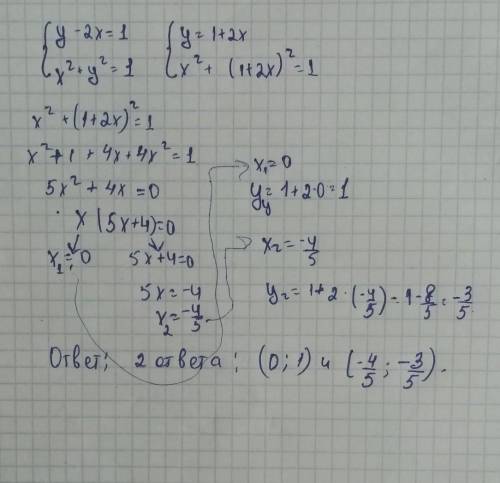 { y - 2x = 1   { y = 1 + 2x
{ x² + y² = 1   { x² + (1+2x)² = 1
x² + (1+2x)² = 1
x² + 1 + 4x + 4x² = 1
5x² + 4x = 0
x (5x+4) = 0
x₁ = 0   5x+4=0
5x = -4
x₂ = -4/5
x₁ = 0
y = 1+2·0 = 1
x₂ = -4/5
y₂ = 1 + 2 · (-4/5) = 1 - 8/5 = -3/5
Ответ: 2 ответа: (0; 1) и (-4/5; -3/5).